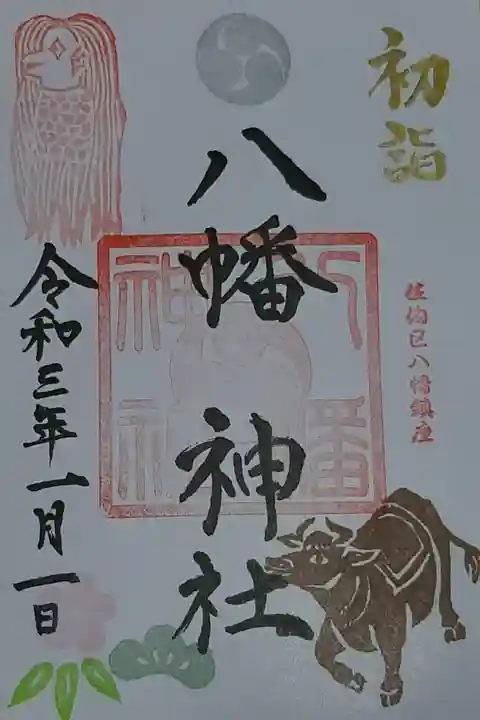 初詣
佐伯臣八幡鎮座
八幡神社
八幡神社
令和三年一月一日